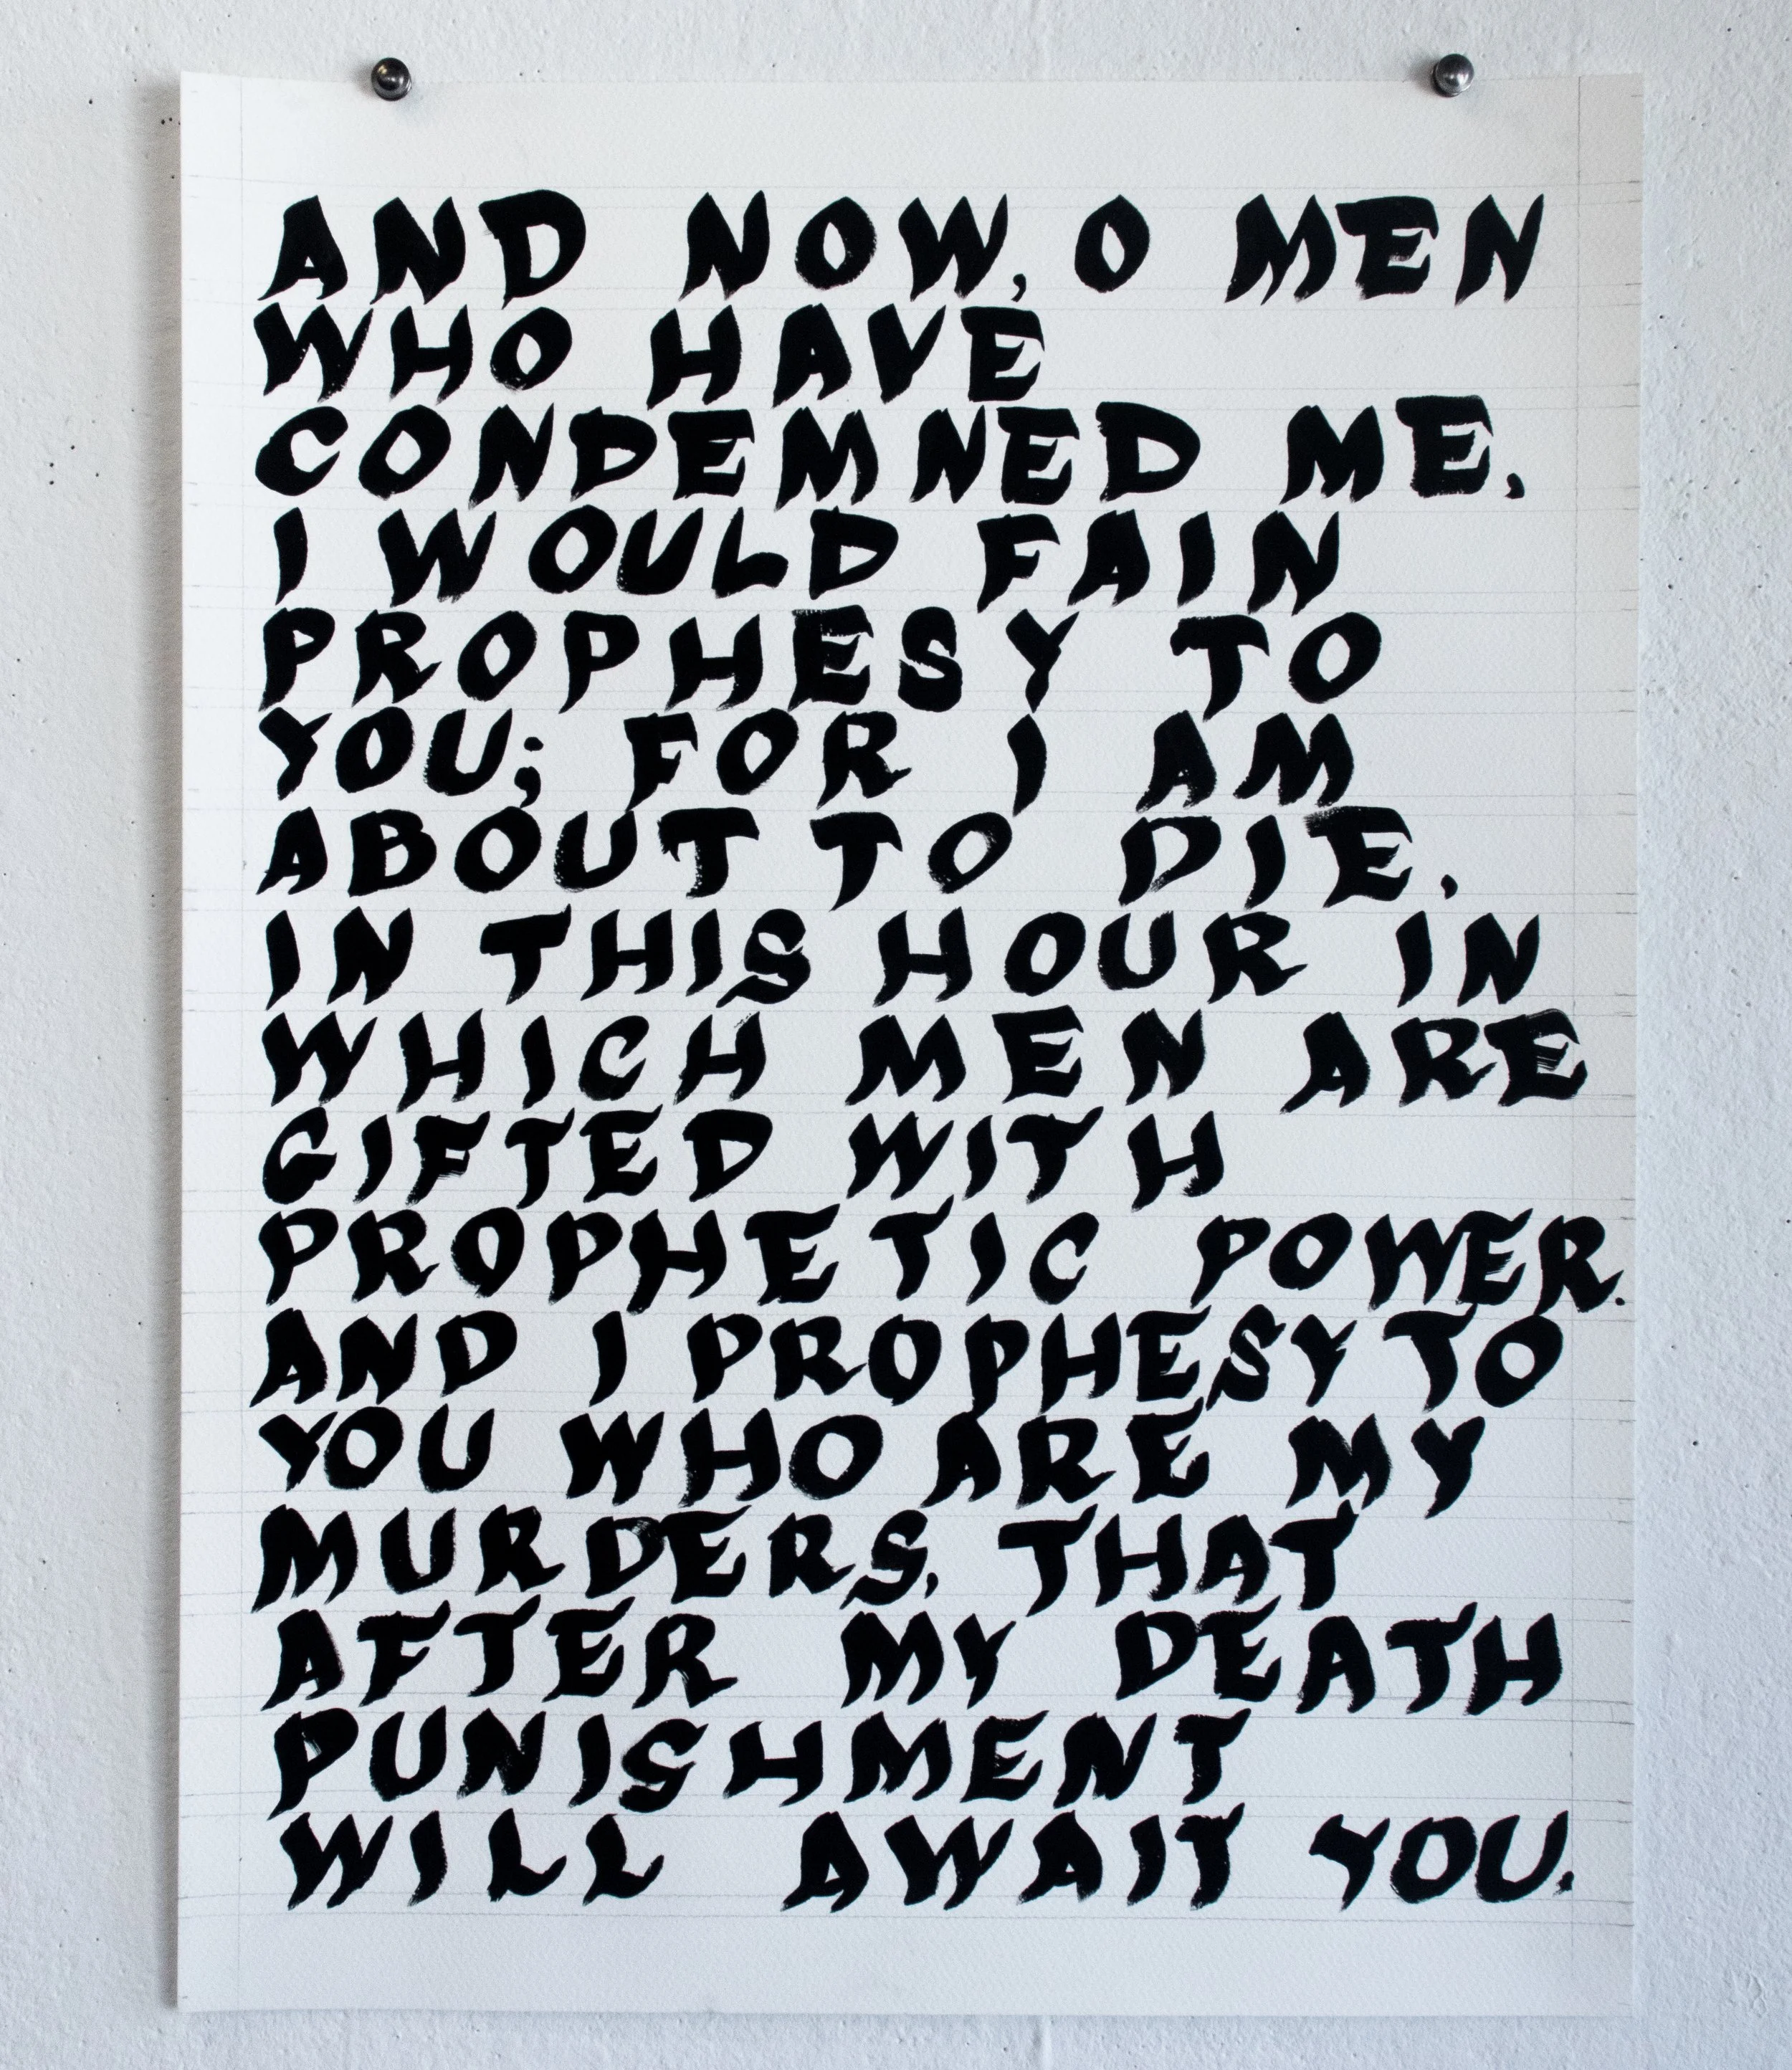 AND NOW, O MEN
WHO HAVE
CONDEMNED ME,
I WOULD FAIN
PROPHESY TO
YOU; FOR I AM
ABOUT TO DIE,
IN THIS HOUR IN
WHICH MEN ARE
GIFTED WITH
PROPHETIC POWER.
AND I PROPHESY TO
YOU WHO ARE MY
MURDERS, THAT
AFTER MY DEATH
PUNISHMENT
WILL AWAIT YOU.